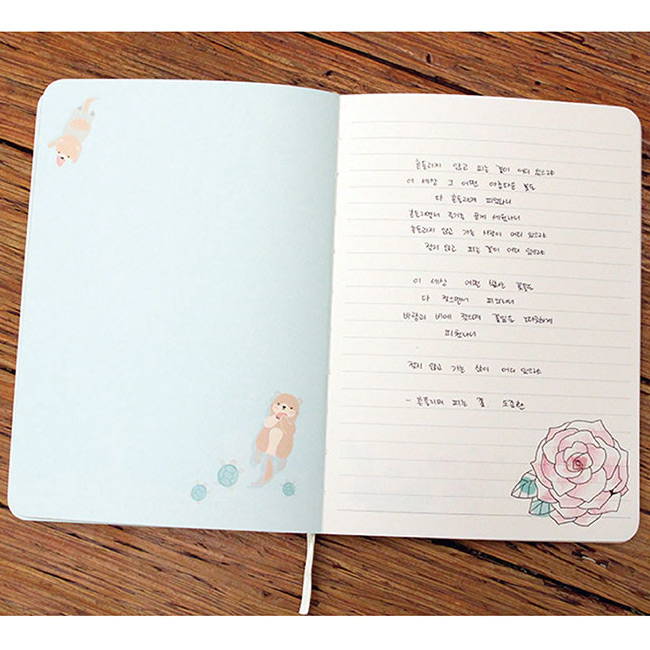 흔들리지 않고 피는 꽃이 어디 있으랴
이 세상 그 어떤 아름다운 꽃도
다 흔들리며 피었나니
흔들리면서 줄기를 곧게 세웠나니
흔들리지 않고 가는 사랑이 어디 있으랴
젖지 않고 피는 꽃이 어디 있으랴
이 세상 어떤 빛나는 꽃들도
다 피었나니
바람과 비에 젖으며 따뜻하게
피웠나니
젖지 않고 가는 삶이 어디 있으랴
- 흔들리며 피는 꽃 도종환